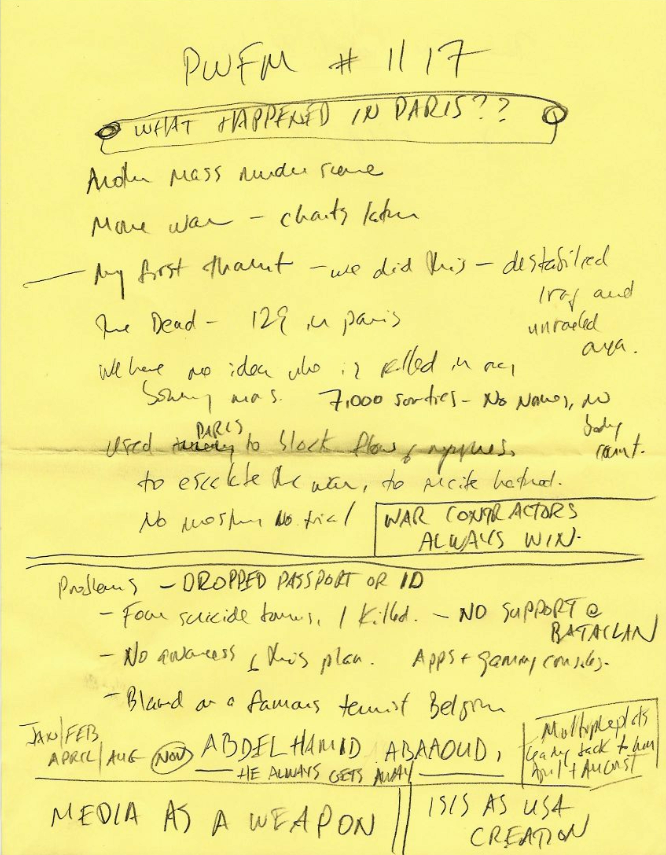 PWFM # 1117
WHAT HAPPENED IN PARIS??
Another mass murder scene
More war - charts later
My first thought - we did this - destabilized
Iraq and
unraveled
area.
The Dead - 129 in paris
We have no idea who is killed in our
bombing runs. 7,000 sorties - No Names, no
body
count.
PARIS
used to block flow of
to escalate the war, to incite hatred.
No No trial
WAR CONTRACTORS
ALWAYS WIN.
Problems - DROPPED PASSPORT OR ID
- Four suicide 1 killed. - NO SUPPORT @
BATACLAN
- No awareness of this plan. Apps + gaming consoles.
- Blamed on a famous terrorist Belgium
JAN/FEB
APRIL/AUG NOV ABDELHAMID ABAAOUD,
HE ALWAYS GETS AWAY
Multiple plots
leading back to him
April + August
MEDIA AS A WEAPON
ISIS AS USA
CREATION